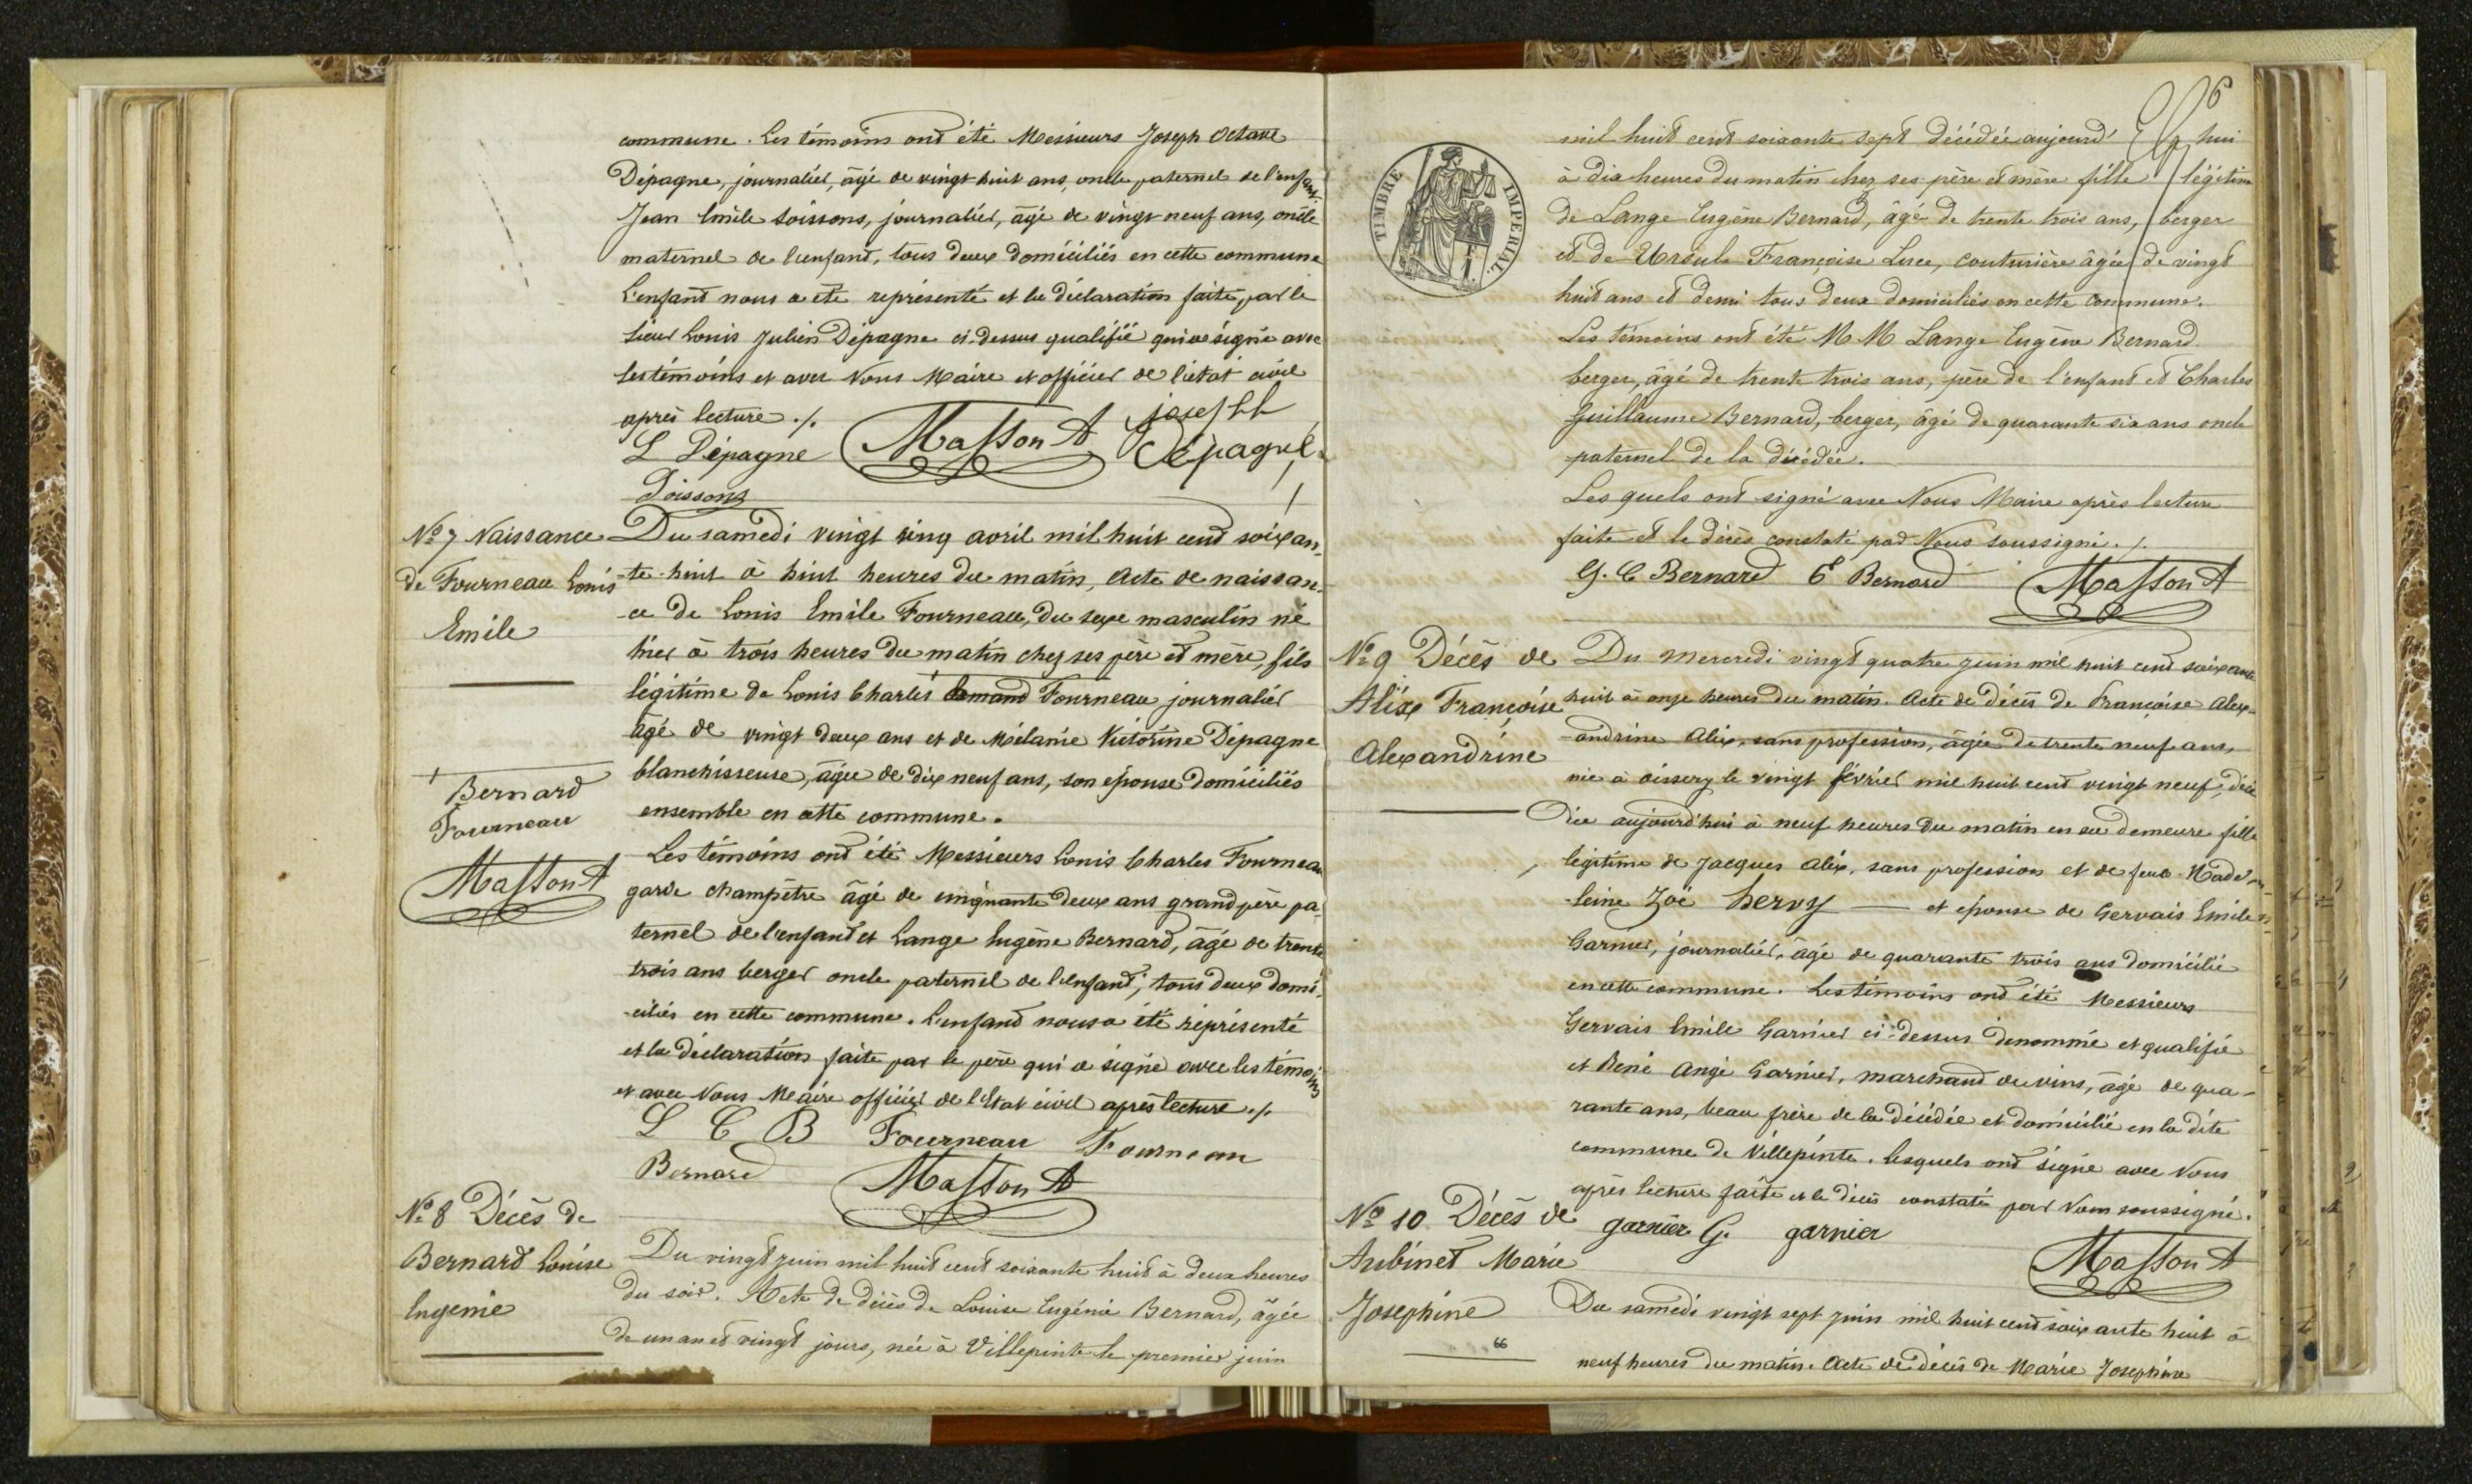 commune. Les témoins ont été Messieurs Joseph Octave
Dépagne, journalier, âgé de vingt huit ans, oncle paternel de l'enfant.
Jean Emile Soissons, journalier, âgé de vingt neuf ans, oncle
maternel de l'enfant, tous deux domiciliés en cette commune
L'enfant nous a été représenté et la déclaration faite par le
sieur Louis Julien Dépagne ci-dessus qualifié qui a signé avec
les témoins et avec Nous Maire et officier de l'état civil
après lecture ./.
joseph
L Dépagne Masson A Dépagne
Soissons
No 7 Naissance
de Fourneau Louis
Emile
Bernard
Fourneau
Masson A
Du samedi vingt cinq avril mil huit cent soixan-
-te-huit à huit heures du matin, Acte de naissan-
-ce de Louis Emile Fourneau, du sexe masculin né
hier à trois heures du matin chez ses père et mère, fils
légitime de Louis Charles Fourneau journalier
âgé de vingt deux ans et de Mélanie Victorine Dépagne
blanchisseuse, âgée de dix neuf ans, son épouse domiciliés
ensemble en cette commune.
Les témoins ont été Messieurs Louis Charles Fourneau
garde champêtre âgé de cinquante deux ans grand père pa-
ternel de l'enfant et Lange Eugène Bernard, âgé de trente
trois ans berger oncle paternel de l'enfant, tous deux domi-
-ciliés en cette commune. L'enfant nous a été représenté
et la déclaration faite par le père qui a signé avec les témoins
et avec Nous Maire officier de l'Etat civil après lecture ./.
L C B Fourneau Fourneau
Bernard Masson A
No 8 Décès de
Bernard Louise
Eugenie
Du vingt juin mil huit cent soixante huit à deux heures
du soir. Acte de décès de Louise Eugénie Bernard, âgée
de un an et vingt jours, née à Villepinte le premier juin
6
TIMBRE IMPERIAL
mil huit cent soixante sept décédée aujourd'hui
à dix heures du matin chez ses père et mère fille légitime
de Lange Eugène Bernard, âgé de trente trois ans, berger
et de Ursule Françoise Luce, couturière âgée de vingt
huit ans et demi tous deux domiciliés en cette commune.
Les témoins ont été M M Lange Eugène Bernard
berger, âgé de trente trois ans, père de l'enfant et Charles
Guillaume Bernard, berger, âgé de quarante six ans oncle
paternel de la décédée.
Les quels ont signé avec Nous Maire après lecture
faite et le décès constaté par Nous soussigné ./.
G. C Bernard E Bernard Masson A
No 9 Décès de
Alix Françoise
Alexandrine
Du mercredi vingt quatre juin mil huit cent soixante
huit à onze heures du matin. Acte de décès de Françoise Alex-
-andrine Alix, sans profession, âgée de trente neuf ans,
née à oissery le vingt février mil huit cent vingt neuf, décé
dée aujourd'hui à neuf heures du matin en sa demeure fille
légitime de Jacques Alix, sans profession et de feue Made-
-leine Zoé hervy — et épouse de Gervais Emile
Garnier, journalier, âgé de quarante trois ans domicilié
en cette commune. Les témoins ont été Messieurs
Gervais Emile Garnier ci-dessus dénommé et qualifié
et René Ange Garnier, marchand de vins, âgé de qua-
rante ans, beau frère de la décédée et domicilié en la dite
commune de Villepinte. Lesquels ont signé avec Nous
après lecture faite et le décès constaté par Nous soussigné.
garnier G. garnier
Masson A
No 10 Décès de
Aubinet Marie
Josephine
Du samedi vingt sept juin mil huit cent soixante huit à
neuf heures du matin. Acte de décès de Marie Josephine